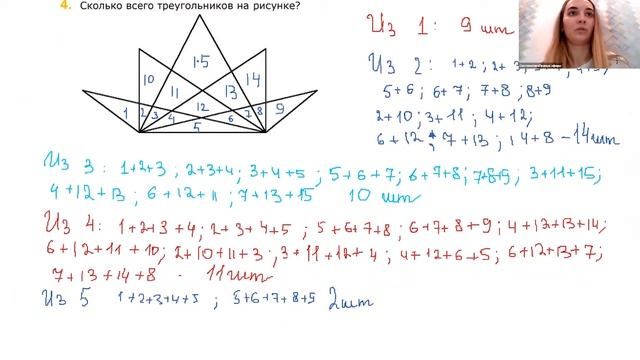 4. Сколько всего треугольников на рисунке?
10 11 1·5 13 14
1 2 3 4 12 5 6 7 8 9
Из 1: 9 шт
Из 2: 1+2; 2+3;
5+6; 6+7; 7+8; 8+9
2+10; 3+11; 4+12;
6+12; 7+13; 14+8 – 14шт
Из 3: 1+2+3; 2+3+4; 3+4+5; 5+6+7; 6+7+8; 7+8+9; 3+11+15;
4+12+13; 6+12+11; 7+13+15 10 шт
Из 4: 1+2+3+4; 2+3+4+5; 5+6+7+8; 6+7+8+9; 4+12+13+14;
6+12+11+10; 2+10+11+3; 3+11+12+4; 4+12+6+5; 6+12+13+7;
7+13+14+8 - 11шт
Из 5 1+2+3+4+5; 5+6+7+8+9 2шт